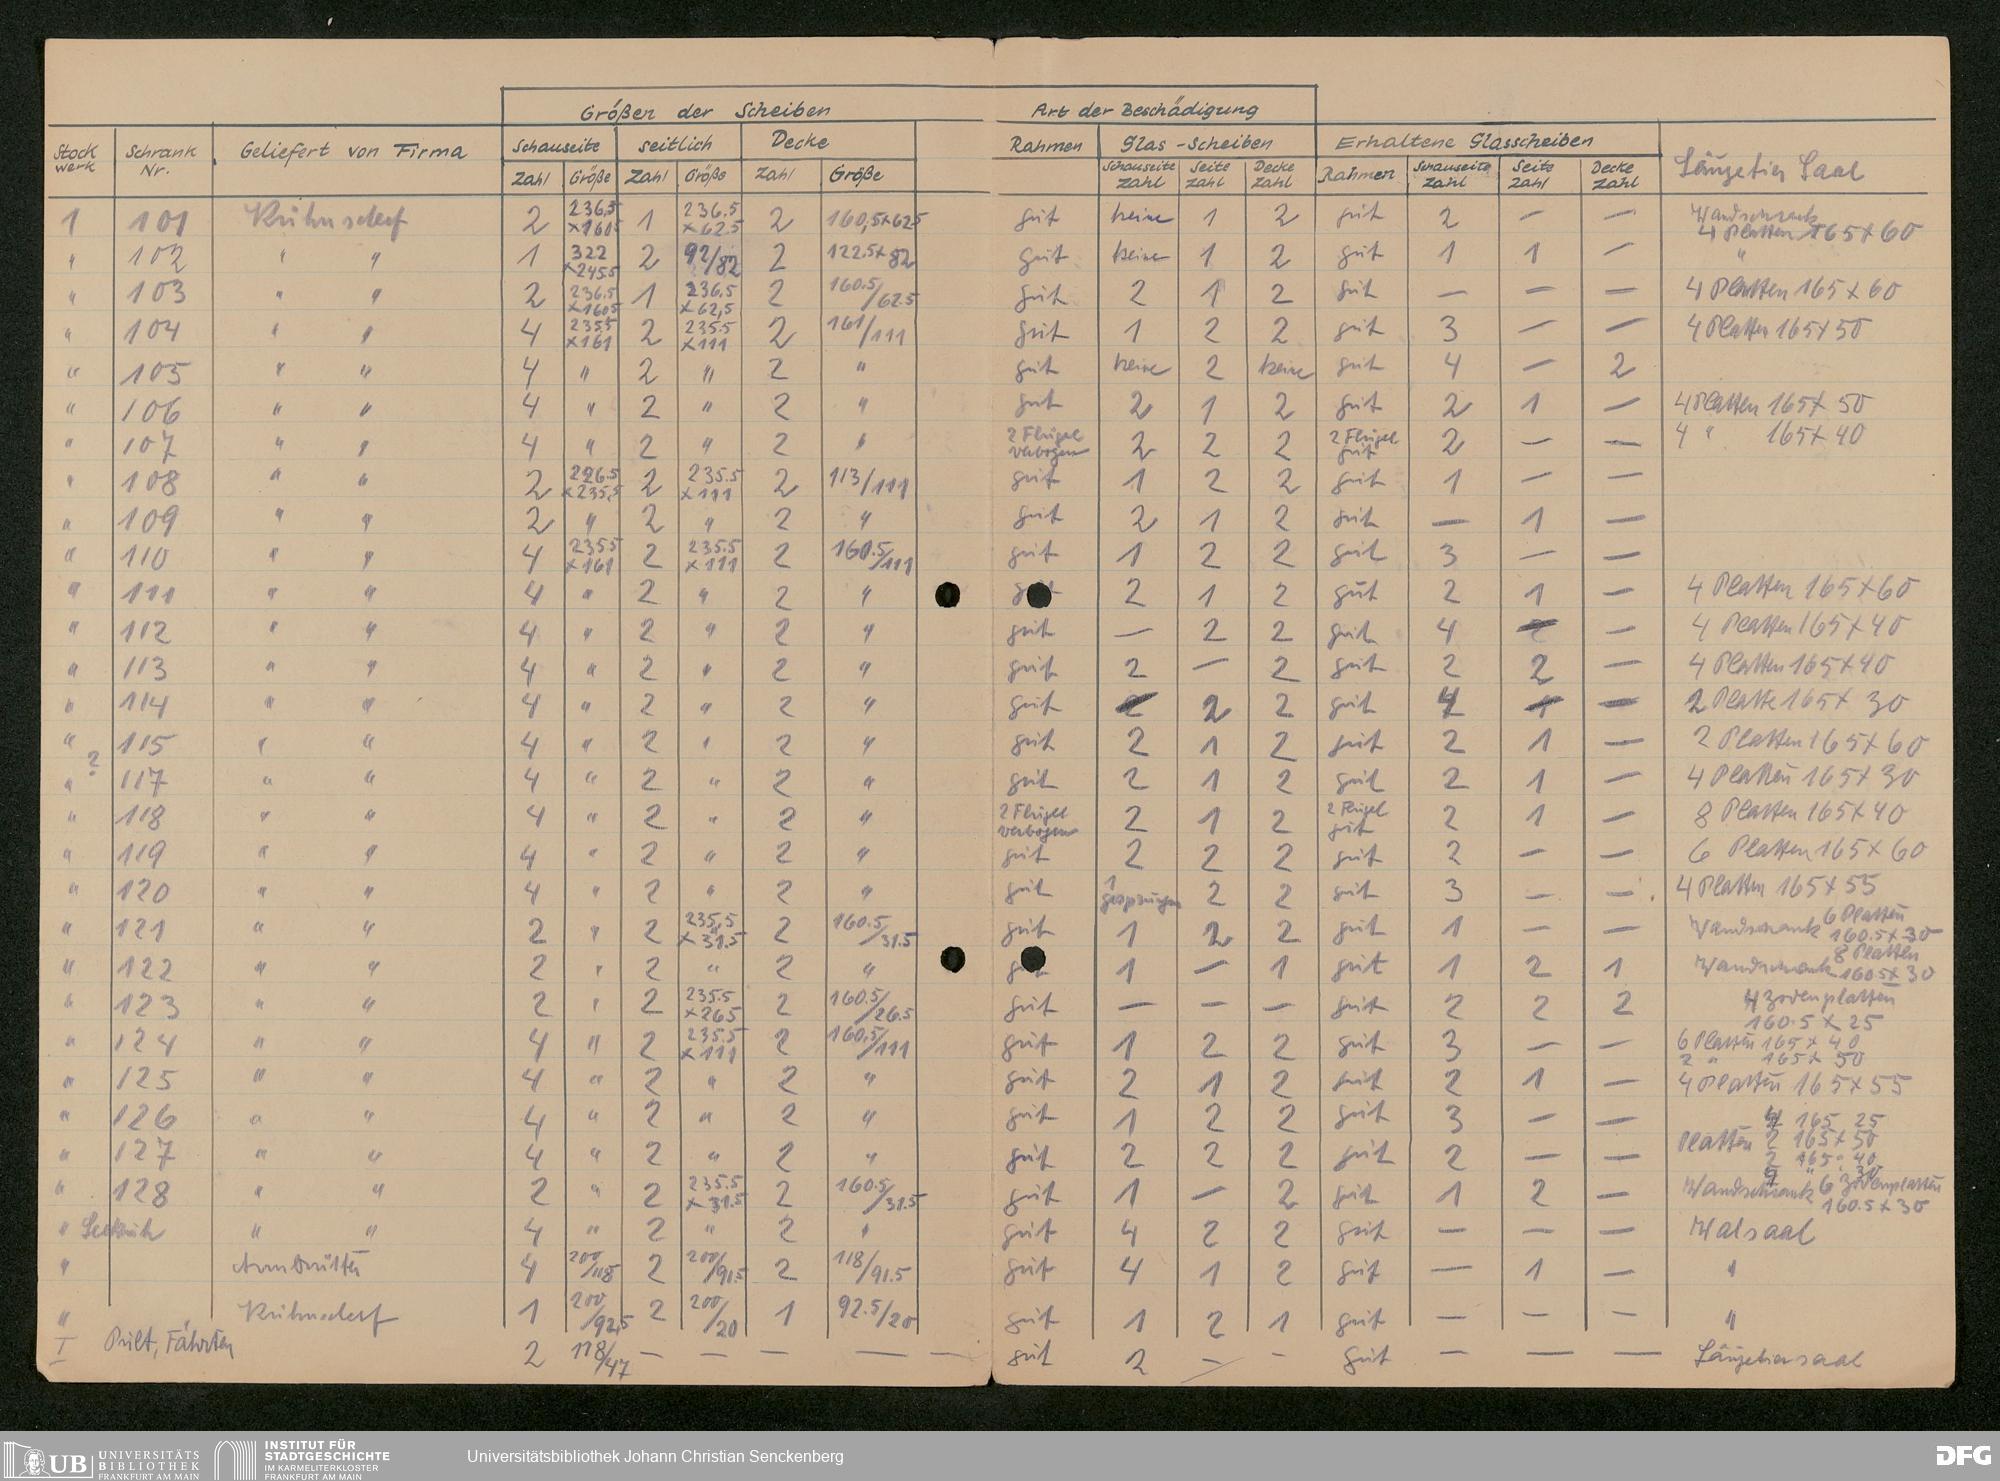 Größen der Scheiben Art der Beschädigung
Stockwerk Schrank Nr. Geliefert von Firma Schauseite seitlich Decke Rahmen Glas-Scheiben Erhaltene Glasscheiben Säugetier Saal
Zahl Größe Zahl Größe Zahl Größe Schauseite Zahl Seite Zahl Decke Zahl Rahmen Schauseite Zahl Seite Zahl Decke Zahl
1 101 Kühnscherf 2 236,5 x 160.5 1 236.5 x 62.5 2 160,5x62.5 gut keine 1 2 gut 2 — — Wandschrank 4 Platten 165x60
" 102 " " 1 322 x 245.5 2 92/82 2 122.5x82 gut keine 1 2 gut 1 1 — "
" 103 " " 2 236.5 x 160.5 1 236.5 x 62,5 2 160.5/62.5 gut 2 1 2 gut — — — 4 Platten 165x60
" 104 " " 4 235.5 x 161 2 235.5 x 111 2 161/111 gut 1 2 2 gut 3 — — 4 Platten 165x50
" 105 " " 4 " 2 " 2 " gut keine 2 keine gut 4 — 2
" 106 " " 4 " 2 " 2 " gut 2 1 2 gut 2 1 — 4 Platten 165x50
" 107 " " 4 " 2 " 2 " 2 Flügel verbogen 2 2 2 2 Flügel gut 2 — — 4 " 165x40
" 108 " " 2 226.5 x 235,5 2 235.5 x 111 2 113/111 gut 1 2 2 gut 1 — —
" 109 " " 2 " 2 " 2 " gut 2 1 2 gut — 1 —
" 110 " " 4 235.5 x 161 2 235.5 x 111 2 160.5/111 gut 1 2 2 gut 3 — —
" 111 " " 4 " 2 " 2 " gut 2 1 2 gut 2 1 — 4 Platten 165x60
" 112 " " 4 " 2 " 2 " gut — 2 2 gut 4 — — 4 Platten 165x40
" 113 " " 4 " 2 " 2 " gut 2 — 2 gut 2 2 — 4 Platten 165x40
" 114 " " 4 " 2 " 2 " gut — 2 2 gut 4 — — 2 Platte 165x30
" 115 " " 4 " 2 " 2 " gut 2 1 2 gut 2 1 — 2 Platten 165x60
?
" 117 " " 4 " 2 " 2 " gut 2 1 2 gut 2 1 — 4 Platten 165x30
" 118 " " 4 " 2 " 2 " 2 Flügel verbogen 2 1 2 2 Flügel gut 2 1 — 8 Platten 165x40
" 119 " " 4 " 2 " 2 " gut 2 2 2 gut 2 — — 6 Platten 165x60
" 120 " " 4 " 2 " 2 " gut 1 gesprungen 2 2 gut 3 — — 4 Platten 165x55
" 121 " " 2 " 2 235,5 x 31.5 2 160.5/31.5 gut 1 2 2 gut 1 — — Wandschrank 6 Platten 160.5x30
" 122 " " 2 " 2 " 2 " gut 1 — 1 gut 1 2 1 Wandschrank 8 Platten 160.5x30
" 123 " " 2 " 2 235.5 x 26.5 2 160.5/26.5 gut — — — gut 2 2 2 4 Bodenplatten 160.5 x 25
" 124 " " 4 " 2 235.5 x 111 2 160.5/111 gut 1 2 2 gut 3 — — 6 Platten 165x40
2 " 165x50
" 125 " " 4 " 2 " 2 " gut 2 1 2 gut 2 1 — 4 Platten 165x55
" 126 " " 4 " 2 " 2 " gut 1 2 2 gut 3 — — 4 165 25
" 127 " " 4 " 2 " 2 " gut 2 2 2 gut 2 — — Platten 2 165x50
2 165 " 40
" 30
" 128 " " 2 " 2 235.5 x 31.5 2 160.5/31.5 gut 1 — 2 gut 1 2 — Wandschrank 6 Bodenplatten 160.5x30
" Seekuh " " 4 " 2 " 2 " gut 4 2 2 gut — — — Walsaal
" 4 200/118 2 200/91.5 2 118/91.5 gut 4 1 2 gut — 1 — "
" Kühnscherf 1 200/92,5 2 200/20 1 92.5/20 gut 1 2 1 gut — — — "
I Pult, Fährten 2 118/47 — — — — — gut 2 — - gut — — — Säugetiersaal
UB UNIVERSITÄTS BIBLIOTHEK FRANKFURT AM MAIN
INSTITUT FÜR STADTGESCHICHTE IM KARMELITERKLOSTER FRANKFURT AM MAIN
Universitätsbibliothek Johann Christian Senckenberg
DFG